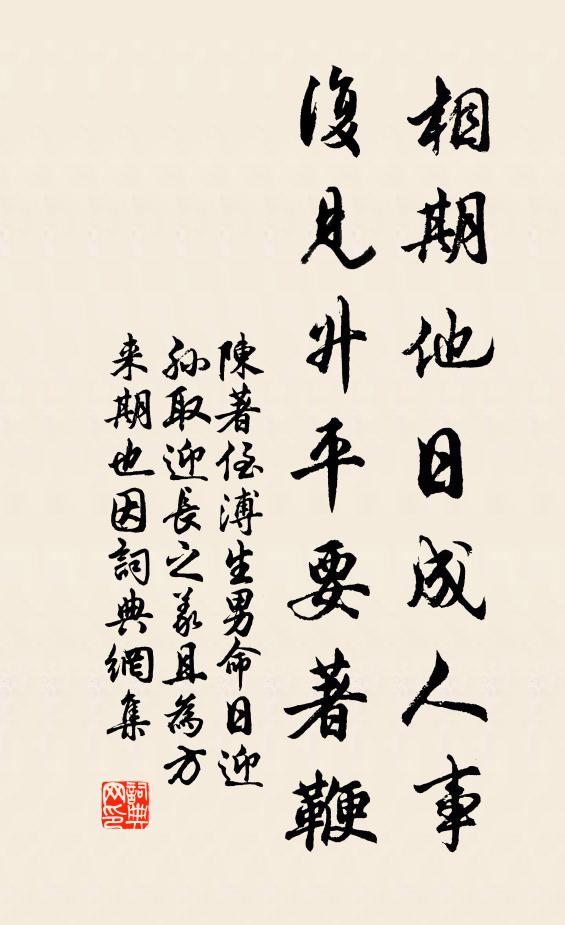 相期他日成人事
復見升平要著鞭
陳著侄溥生男命日迎
孫取迎長之義且為方
来期也因詞典網集
詞典
网印